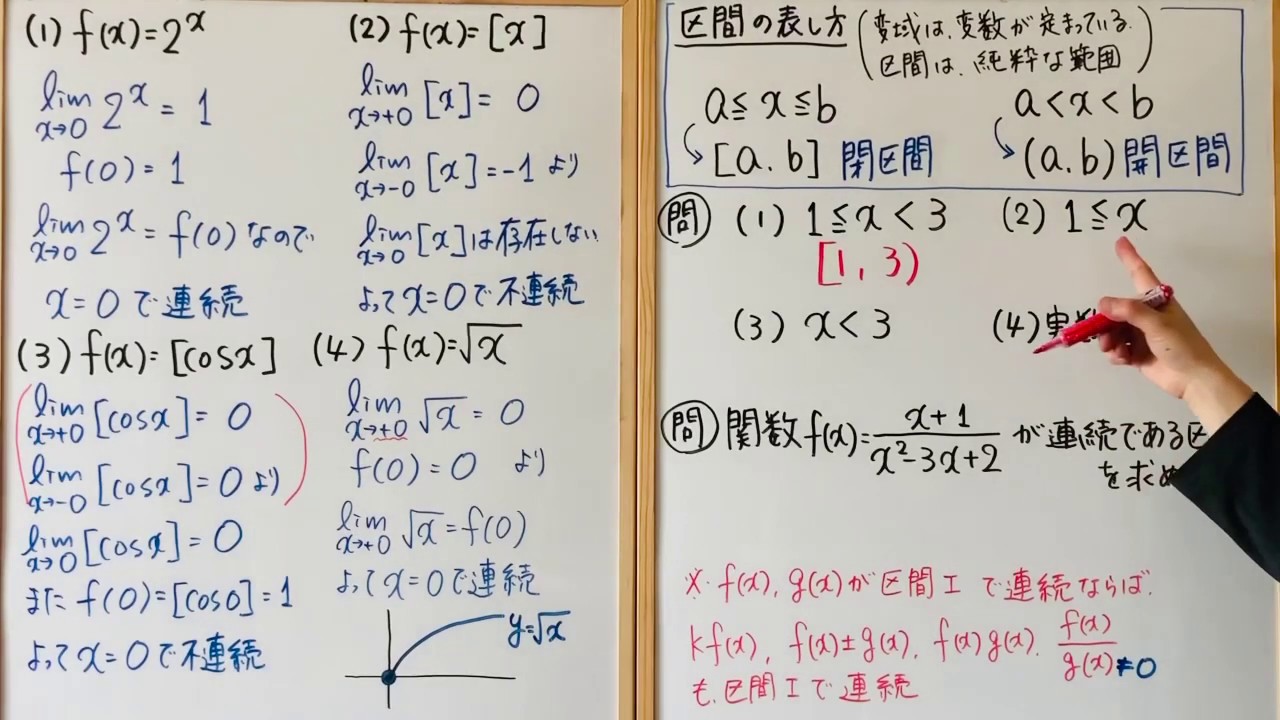 (1) f(x)=2^x
lim x→0 2^x = 1
f(0)=1
lim x→0 2^x = f(0) なので
x=0で連続
(2) f(x)=[x]
lim x→+0 [x]= 0
lim x→-0 [x]=-1 より
lim x→0 [x]は存在しない
よってx=0で不連続
(3) f(x)=[cosx]
lim x→+0 [cosx]= 0
lim x→-0 [cosx]= 0 より
lim x→0 [cosx]= 0
また f(0)=[cos0]=1
よってx=0で不連続
(4) f(x)=√x
lim x→+0 √x = 0
f(0)=0 より
lim x→+0 √x=f(0)
よってx=0で連続
y=√x
区間の表し方 (変域は、変数が定まっている。
区間は、純粋な範囲)
a≦x≦b
[a.b] 閉区間
a<x<b
(a.b) 開区間
問 (1) 1≦x<3 (2) 1≦x
[1, 3)
(3) x<3 (4)実数
問 関数f(x)=(x+1)/(x²-3x+2) が連続である区
を求め
※ f(x), g(x)が区間Iで連続ならば、
kf(x), f(x)±g(x), f(x)g(x), f(x)/g(x) ≠0
も、区間Iで連続